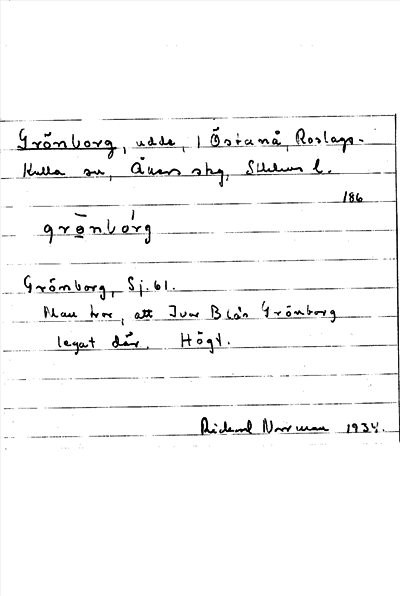 Grönborg, udde, i Östanå, Roslags-
Kulla sn, Åkers skg, Sthlms l.
186
grönbórg
Grönborg, Sj. 61.
Man tror, att Ivar Blås Grönborg
legat där. Högt.
Rickard Norrman 1934.